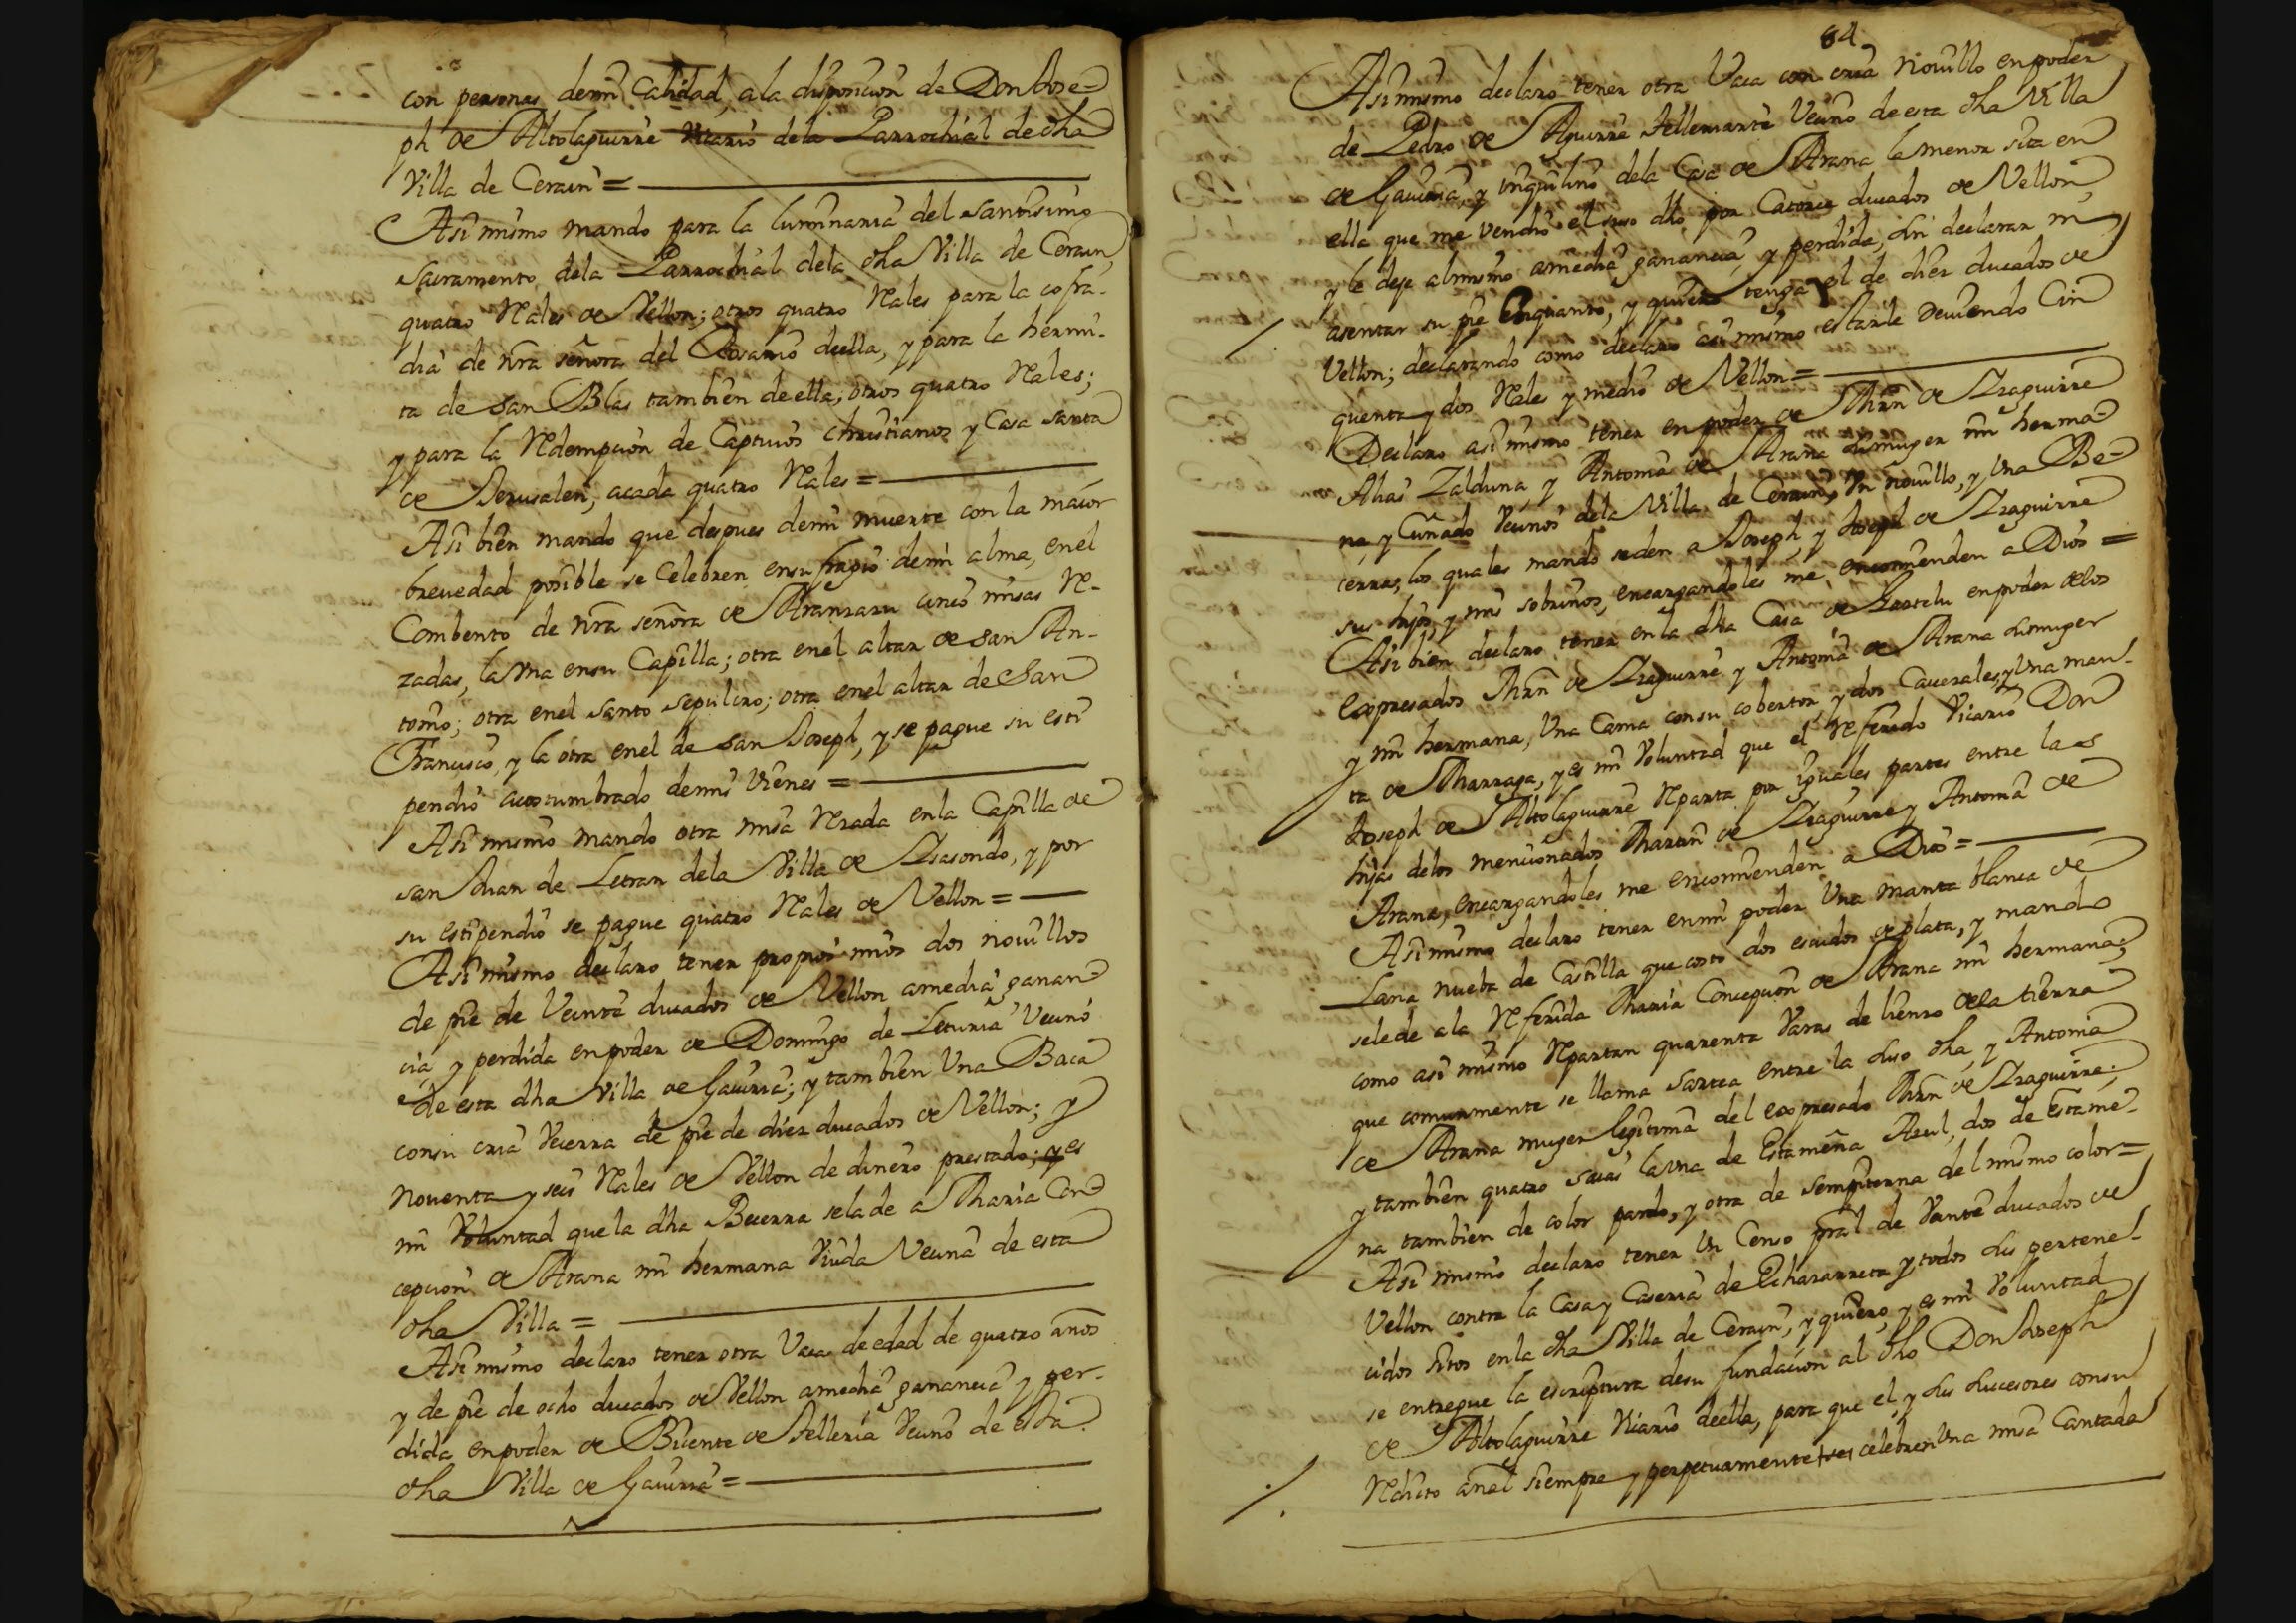 con personas demi Calidad, ala disposicion de Don Jose=
ph de Altolaguirre Vicario dela Parrochial de dha
Villa de Cerain =
Asi mismo mando para la luminaria del santisimo
sacramento dela Parrochial dela dha Villa de Cerain,
quatro Rales de Vellon; otros quatro Rales para la cofra-
dia de nra señora del Rosario deella, y para la hermi-
ta de san Blas tambien deella, otros quatro Rales;
y para la Redempcion de Captivos christianos y Casa santa
de Jerusalen, acada quatro Rales =
Asi bien mando que despues demi muerte con la maior
brevedad posible se Celebren ensufragio demi alma, enel
Combento de nra señora de Aranzazu cinco misas Re-
zadas, la Una ensu Capilla; otra enel altar de san An-
tonio; otra enel santo sepulcro; otra enel altar de San
Francisco, y la otra enel de san Joseph, y se pague su esti
pendio acostumbrado demis Vienes =
Asi mismo mando otra misa Rezada enla Capilla de
san Juan de Letran dela Villa de Isasondo, y por
su estipendio se pague quatro Rales de Vellon =
Asi mismo declaro tener propios mios dos novillos
de pie de Veinte ducados de Vellon amedia ganan=
cia, y perdida enpoder de Domingo de Leturia Vecino
de esta dha Villa de Gaviria; y tambien Una Baca
consu cria Vecerra de pie de diez ducados de Vellon; y
noventa y seis Rales de Vellon de dinero prestado; y es
mi Voluntad que la dha Becerra selade a Maria Con=
cepcion de Arana mi hermana Viuda Vecina de esta
dha Villa =
Asi mismo declaro tener otra Vaca de edad de quatro años
y de pie de ocho ducados de Vellon amedia ganancia y per-
dida enpoder de Vicente de Telleria Vecino de esta
dha Villa de Gaviria =
84
Asi mismo declaro tener otra Vaca con cria novillo enpoder
de Pedro de Aguirre Telleriarte Vecino de esta dha Villa
de Gaviria, y inquilino dela Casa de Arana la menor sita en
ella que me vendio el suso dho por Catorce ducados de Vellon,
y le deje almismo amedia ganancia, y perdida, sin declarar ni
asentar su pie enquanto, y quiero tenga el de diez ducados de
Vellon; declarando como declaro asi mismo estarle deviendo Cin
quenta y dos Rales y medio de Vellon =
Declaro asi mismo tener enpoder de Mrn de Izaguirre
Alias Zalduna, y Antonia de Arana sumuger mi herma=
na, y Cuñado Vecinos dela Villa de Cerain, Un novillo, y Una Be=
cerra, los quales mando seden a Joseph, y Joseph de Izaguirre
sus hijos, y mis sobrinos, encargandoles me encomienden a Dios =
Asi bien declaro tener enla dha Casa de enpoder delos
expresados Mrn de Izaguirre y Antonia de Arana sumuger
y mi hermana, Una Cama consu cobertor, y dos Cavezales, y Una man-
ta de Marraga, y es mi Voluntad que el Referido Vicario Don
Joseph de Altolaguirre Reparta por iguales partes entre las
hijas delos mencionados Martin de Izaguirre y Antonia de
Arana, encargandoles me encomienden a Dios =
Asi mismo declaro tener enmi poder Una manta blanca de
Lana nueba de Castilla que costo dos escudos de plata, y mando
selede ala Referida Maria Concepcion de Arana mi hermana;
como asi mismo Repartan quarenta Varas de lienzo dela tierra
que comunmente se llama sartea entre la suso dha, y Antonia
de Arana muger legitima del expresado Mrn de Izaguirre;
y tambien quatro saias la Una de Estameña Azul, dos de Estame-
na tambien de color pardo, y otra de sempiterna del mismo color =
Asi mismo declaro tener Un Censo pral de Veinte ducados de
Vellon contra la Casa y Caseria de Echazarreta y todos sus pertene-
cidos sitos enla dha Villa de Cerain, y quiero, y es mi Voluntad
se entregue la escriptura desu fundacion al dho Don Joseph
de Altolaguirre Vicario deella, para que el y sus sucesores consu
Redito anal siempre y perpetuamente celebren Una misa Cantada